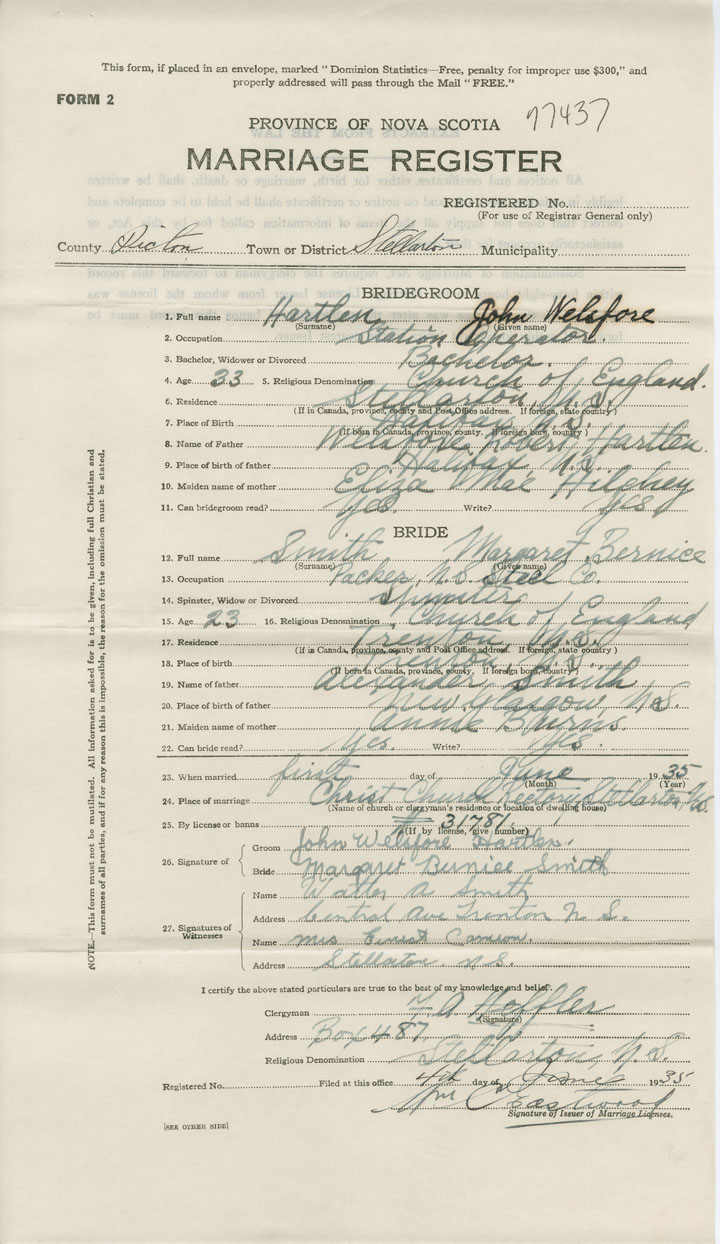 This form, if placed in an envelope, marked "Dominion Statistics—Free, penalty for improper use $300," and
properly addressed will pass through the Mail "FREE."
FORM 2
PROVINCE OF NOVA SCOTIA 97437
MARRIAGE REGISTER
REGISTERED No.
(For use of Registrar General only)
County Pictou Town or District Stellarton Municipality
BRIDEGROOM
1. Full name Hartlen John Welsfore
(Surname) (Given name)
2. Occupation Station Operator.
3. Bachelor, Widower or Divorced Bachelor.
4. Age 33 5. Religious Denomination Church of England.
6. Residence Stellarton, N.S.
(If in Canada, province, county and Post Office address. If foreign, state country)
7. Place of Birth Halifax N.S.
(If born in Canada, province, county. If foreign born, country)
8. Name of Father Welsfore Robert Hartlen.
9. Place of birth of father Halifax N.S.
10. Maiden name of mother Eliza Mae Hilchey
11. Can bridegroom read? Yes. Write? Yes
BRIDE
12. Full name Smith Margaret Bernice
(Surname) (Given name)
13. Occupation Packer, N.S. Steel Co.
14. Spinster, Widow or Divorced Spinster
15. Age 23 16. Religious Denomination Church of England
17. Residence Trenton, N.S.
(If in Canada, province, county and Post Office address. If foreign, state country)
18. Place of birth Trenton, N.S.
(If born in Canada, province, county, If foreign born, country)
19. Name of father Alexander Smith
20. Place of birth of father New Glasgow, N.S.
21. Maiden name of mother Annie Burns.
22. Can bride read? Yes. Write? Yes.
23. When married first day of June 1935
(Month) (Year)
24. Place of marriage Christ Church Rectory, Stellarton, N.S.
(Name of church or clergyman's residence or location of dwelling house)
25. By license or banns # 31781
(If by license, give number)
26. Signature of
Groom John Welsfore Hartlen.
Bride Margaret Bernice Smith
27. Signatures of Witnesses
Name Walter A. Smith
Address Central Ave Trenton N.S.
Name Mrs Ernest Cameron.
Address Stellarton N.S.
I certify the above stated particulars are true to the best of my knowledge and belief.
Clergyman A Hoffler
(Signature)
Address Box 487
Religious Denomination Stellarton N.S.
Registered No. Filed at this office 4th day of June 1935
Wm Eastwood
Signature of Issuer of Marriage Licenses.
[SEE OTHER SIDE]
NOTE.—This form must not be mutilated. All information asked for is to be given, including full Christian and
surnames of all parties, and if for any reason this is impossible, the reason for the omission must be stated.